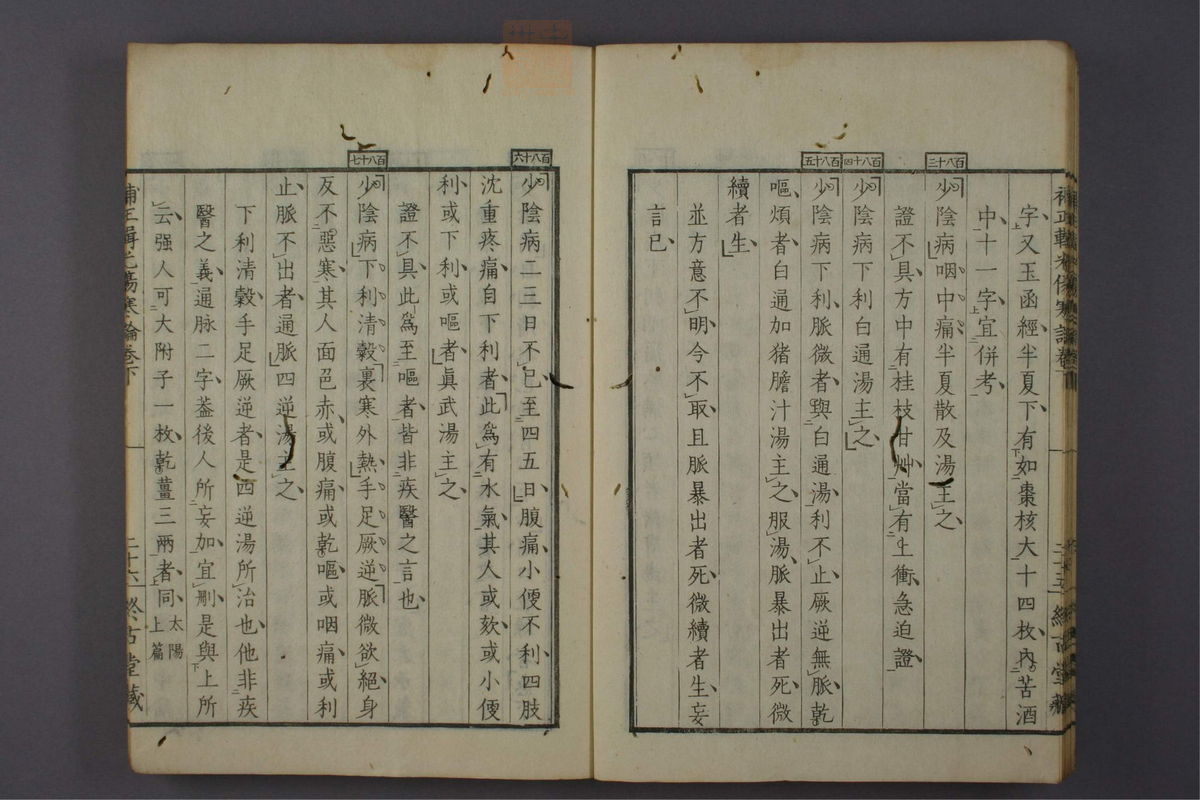 字又玉函經半夏下有如棗核大十四枚內苦酒
中十一字宜併考
百八十三
少陰病咽中痛半夏散及湯主之
證不具方中有桂枝甘艸當有上衝急迫證
百八十四
少陰病下利白通湯主之
百八十五
少陰病下利脈微者與白通湯利不止厥逆無脈乾
嘔煩者白通加猪膽汁湯主之服湯脈暴出者死微
續者生
並方意不明今不取且脈暴出者死微續者生妄
言已
百八十六
少陰病二三日不已至四五日腹痛小便不利四肢
沈重疼痛自下利者此爲有水氣其人或欬或小便
利或下利或嘔者眞武湯主之
證不具此爲至嘔者皆非疾醫之言也
百八十七
少陰病下利清穀裏寒外熱手足厥逆脈微欲絕身
反不惡寒其人面色赤或腹痛或乾嘔或咽痛或利
止脈不出者通脈四逆湯主之
下利清穀手足厥逆者是四逆湯所治也他非疾
醫之義通脉二字蓋後人所妄加宜刪是與上所
云强人可大附子一枚乾薑三兩者同太陽上篇
傷寒論卷下 二十六